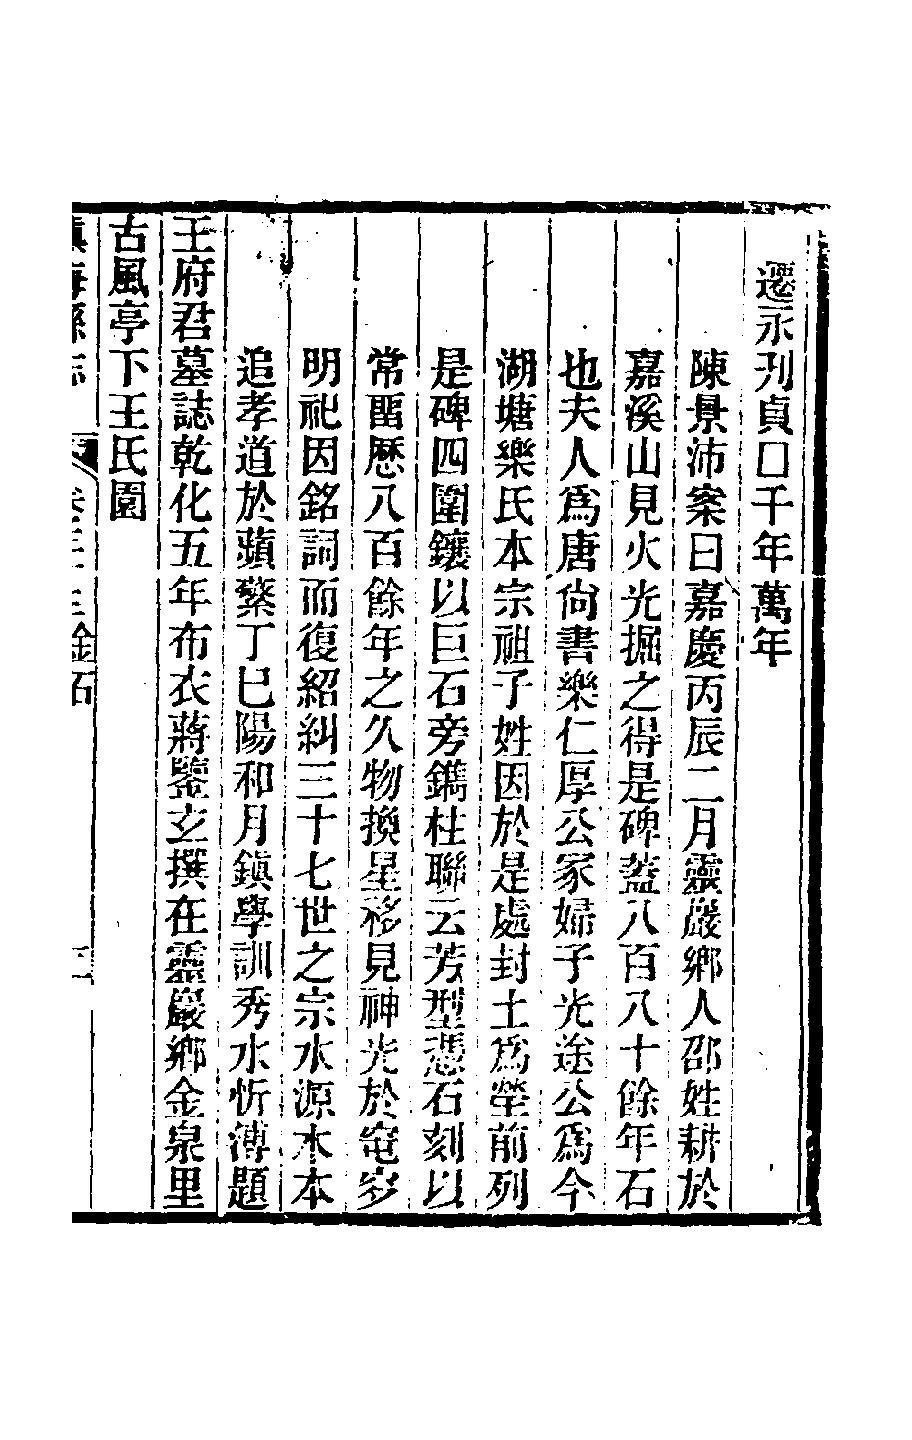 遷永刋貞□千年萬年
陳景沛案曰嘉慶丙辰二月靈巖鄉人邵姓耕於
嘉溪山見火光掘之得是碑蓋八百八十餘年石
也夫人爲唐尙書樂仁厚公冢婦子光途公爲今
湖塘樂氏本宗祖子姓因於是處封土爲塋前列
是碑四圍鑲以巨石旁鐫柱聯云芳型憑石刻以
常畱歷八百餘年之久物換星移見神光於窀穸
明祀因銘詞而復紹糾三十七世之宗水源木本
追孝道於蘋蘩丁巳陽和月鎭學訓秀水忻溥題
王府君墓誌乾化五年布衣蔣鑒玄撰在靈巖鄉金泉里
古風亭下王氏園
鎭海縣志 卷三十二金石 二